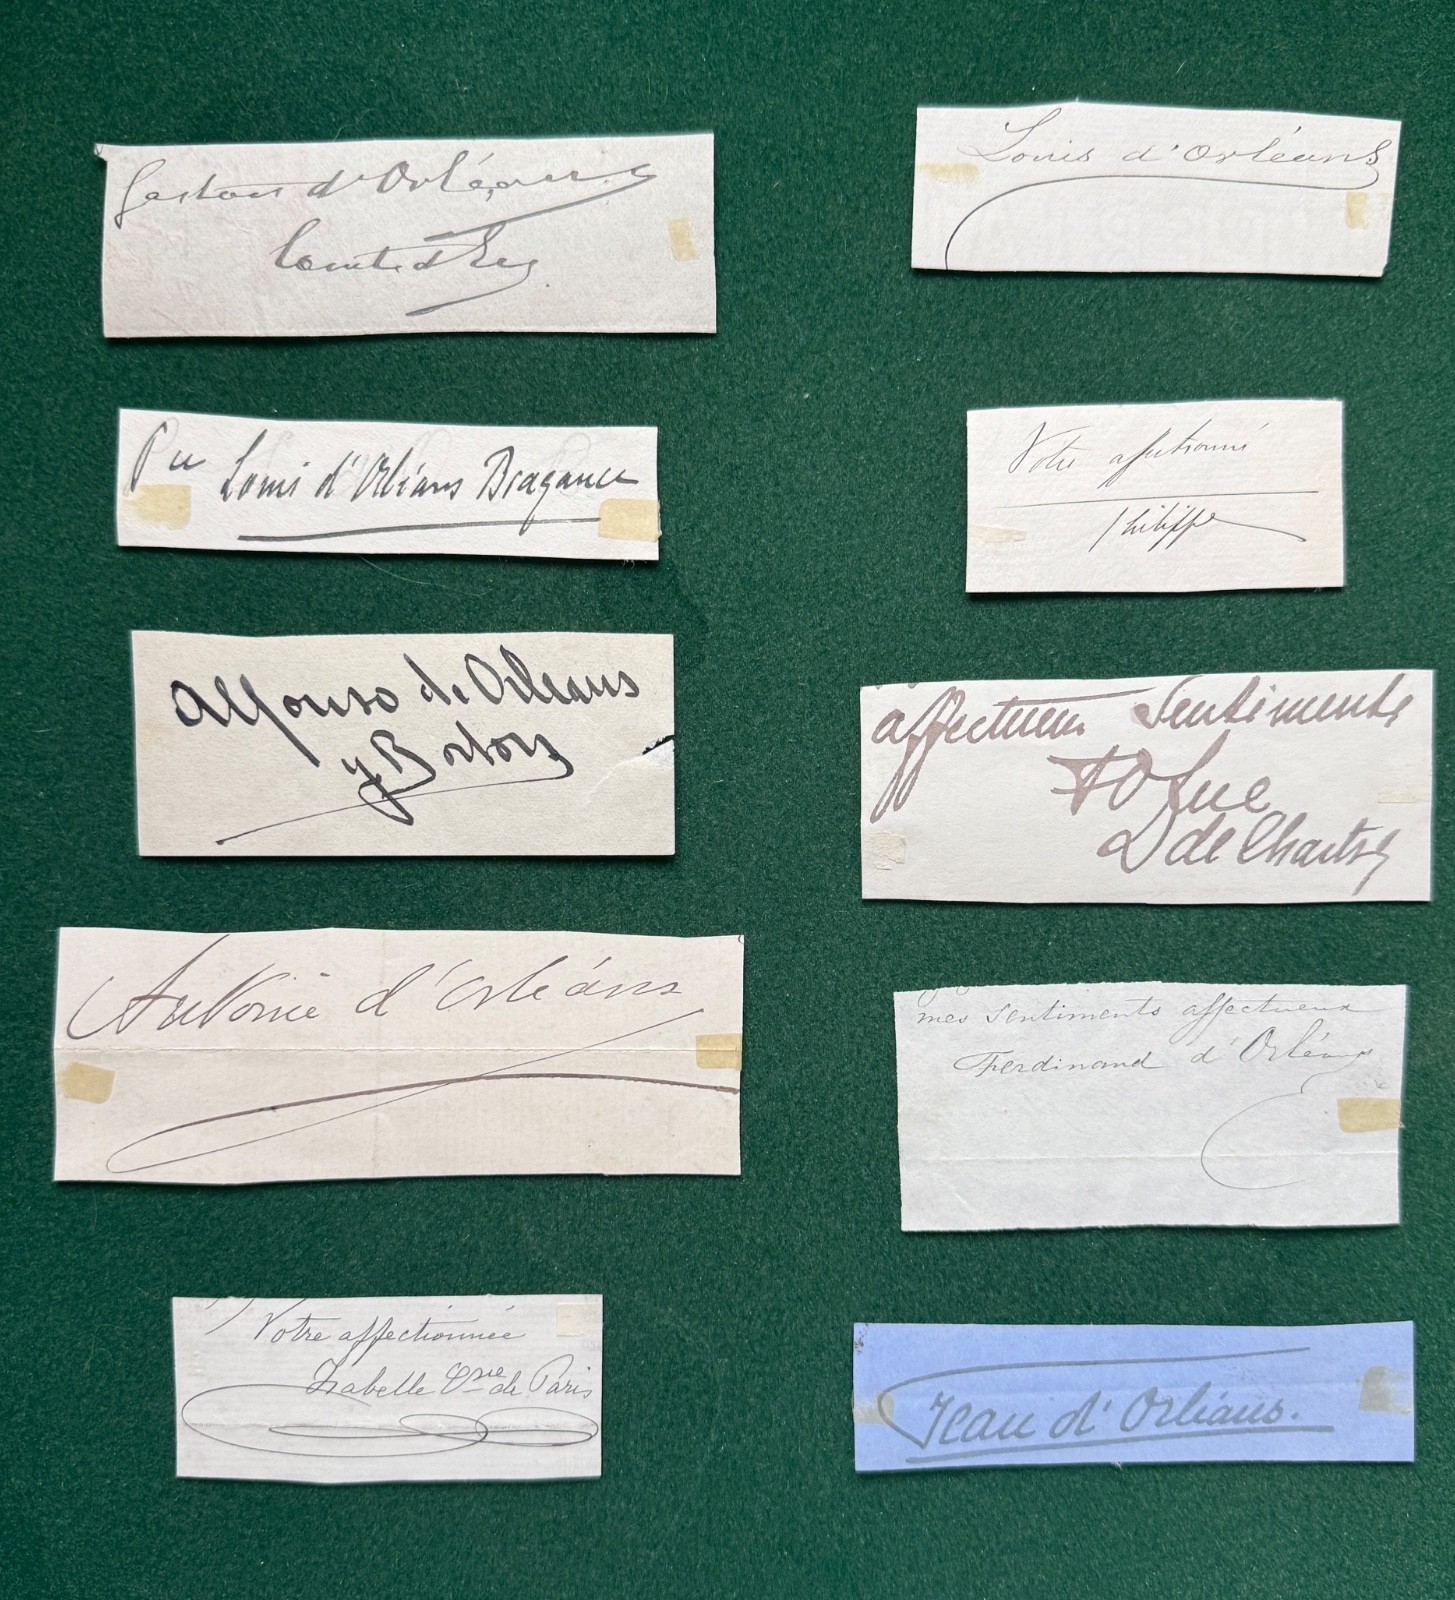 Gaston d'Orléans
Comte d'Eu
Pce Louis d'Orléans Bragance
Alfonso de Orleans
y Borbon
Antoine d'Orléans
Votre affectionnée
Isabelle Csse de Paris
Louis d'Orléans
Votre affectionné
Philippe
affectueux Sentiments
Duc
de Chartres
mes sentiments affectueux
Ferdinand d'Orléans
Jean d'Orléans.